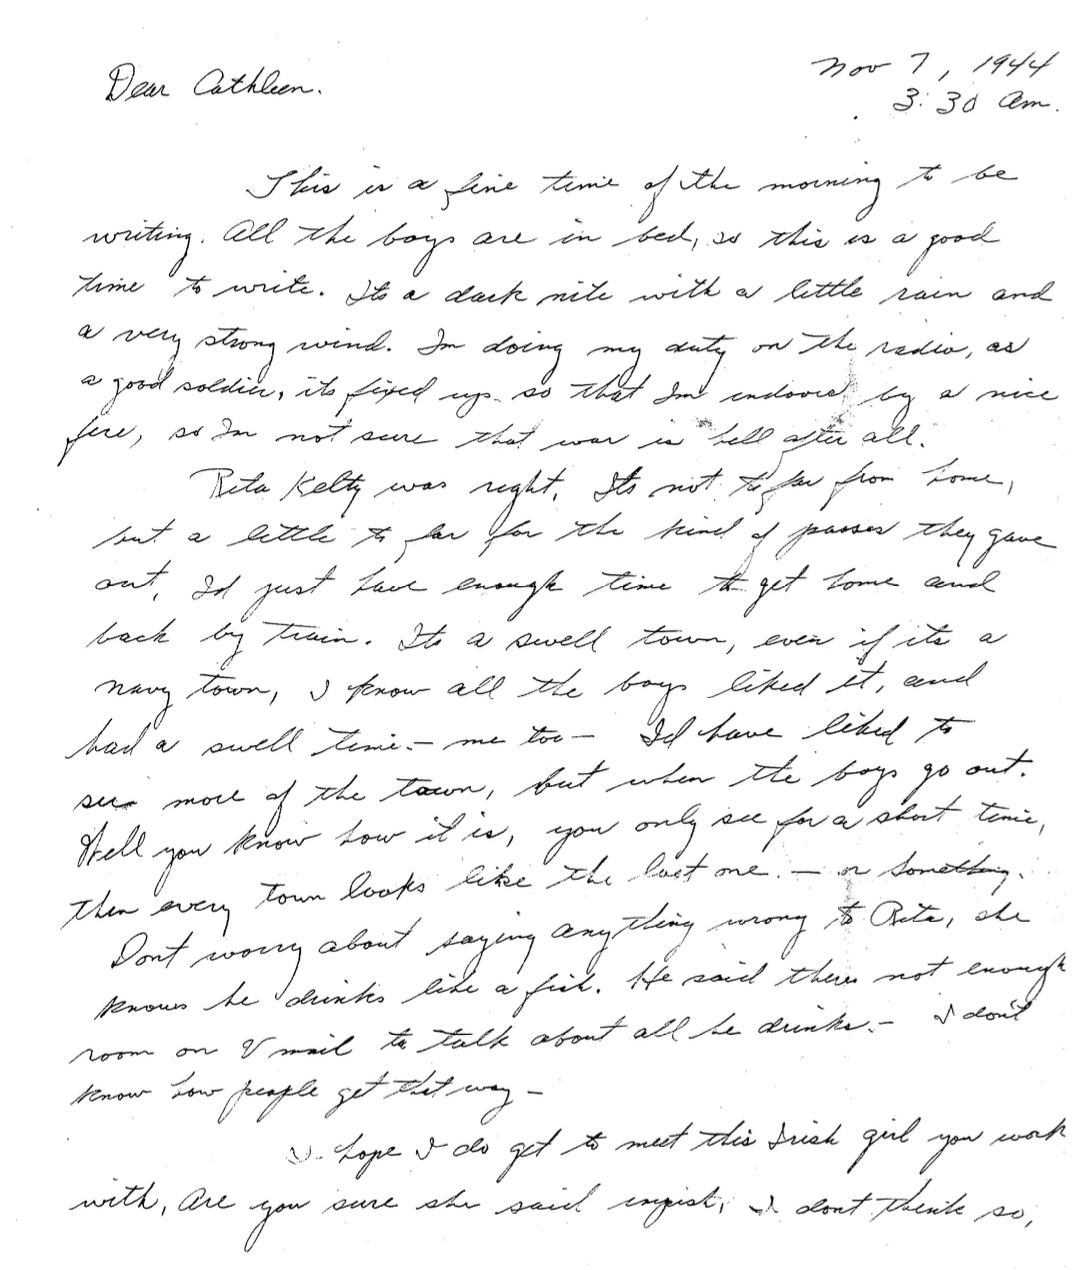 Nov 7, 1944
Dear Cathleen.
3:30 am.
This is a fine time of the morning to be
writing. All the boys are in bed, so this is a good
time to write. Its a dark nite with a little rain and
a very strong wind. Im doing my duty on the radio, as
a good soldier, its fixed up so that Im indoors by a nice
fire, so Im not sure that war is hell after all.
Rita Kelty was right. Its not to far from home,
but a little to far for the kind of passes they gave
out, Id just have enough time to get home and
back by train. Its a swell town, even if its a
navy town, I know all the boys liked it, and
had a swell time.- me too- Id have liked to
see more of the town, but when the boys go out.
Well you know how it is, you only see for a short time,
then every town looks like the last one. - or something.
Dont worry about saying anything wrong to Rita, she
knows he drinks like a fish. He said theres not enough
room on V mail to talk about all he drinks.- I don't
know how people get that way -
I hope I do get to meet this Irish girl you work
with, Are you sure she said, I dont think so,